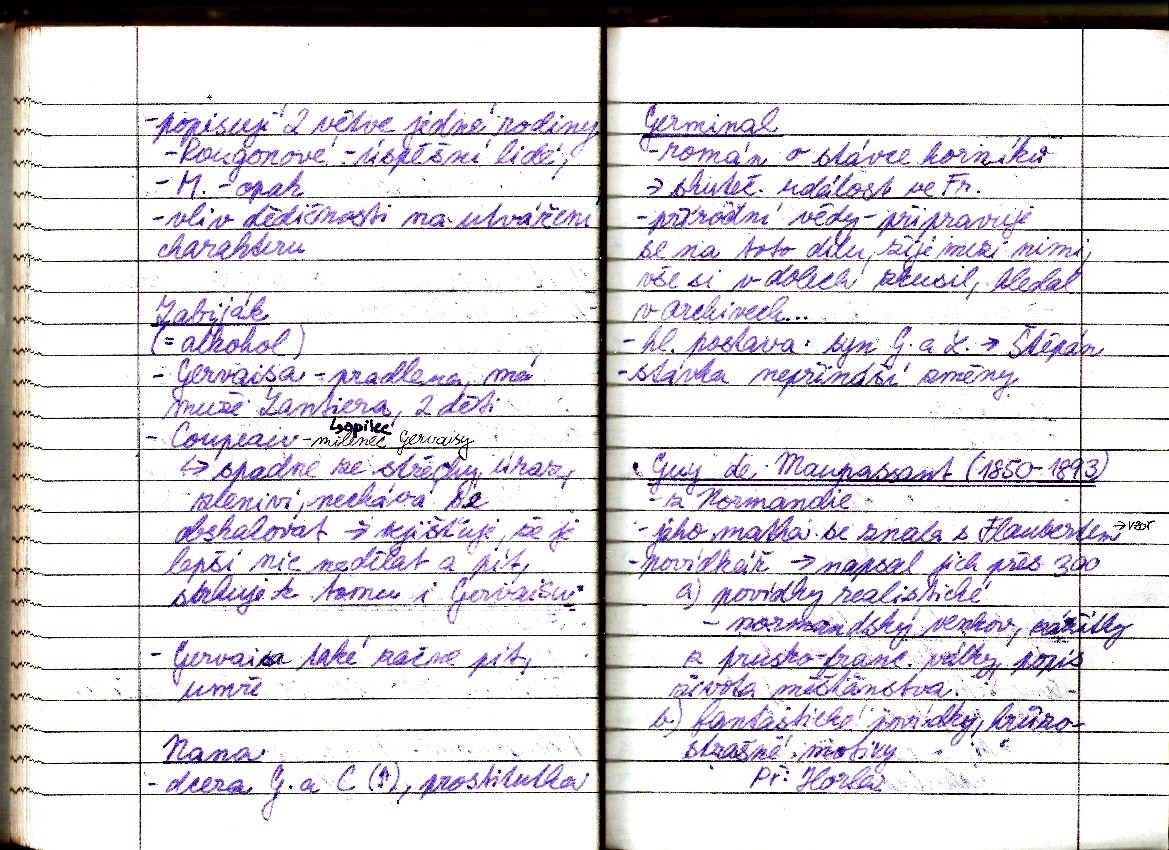 -popisují 2 větve jedné rodiny
-Rougonové -úspěšní lidé,
- M. - opak
-vliv dědičnosti na utváření
charakteru
Zabiják
(= alkohol)
- Gervaisa - pradlena, má
muže Lantiera, 2 děti
↳opilec
- Coupeau -milenec Gervaisy
↳ spadne ze střechy, úraz,
zleniví, nechává se
obskakovat → zjišťuje, že je
lepší nic nedělat a pít,
strhuje k tomu i Gervaisu
- Gervaisa také začne pít,
umře
Nana
- dcera G. a C (↑), prostitutka
Germinal
-román o stávce horníků
→ skuteč. událost ve Fr.
-přírodní vědy-připravuje
se na toto dílo, žije mezi nimi,
vše si v dolech zkusil, hledal
v archivech...
- hl. postava: syn G. a L. → Štěpán
-stávka nepřináší změny
Guy de Maupassant (1850-1893)
- z Normandie
- jeho matka se znala s Flaubertem → vzor
-povídkář → napsal jich přes 300
a) povídky realistické
- normandský venkov, zážitky
z prusko-franc. války, popis
života měšťanstva.
b) fantastické povídky, hrůzo-
strašné motivy
Př: Horla